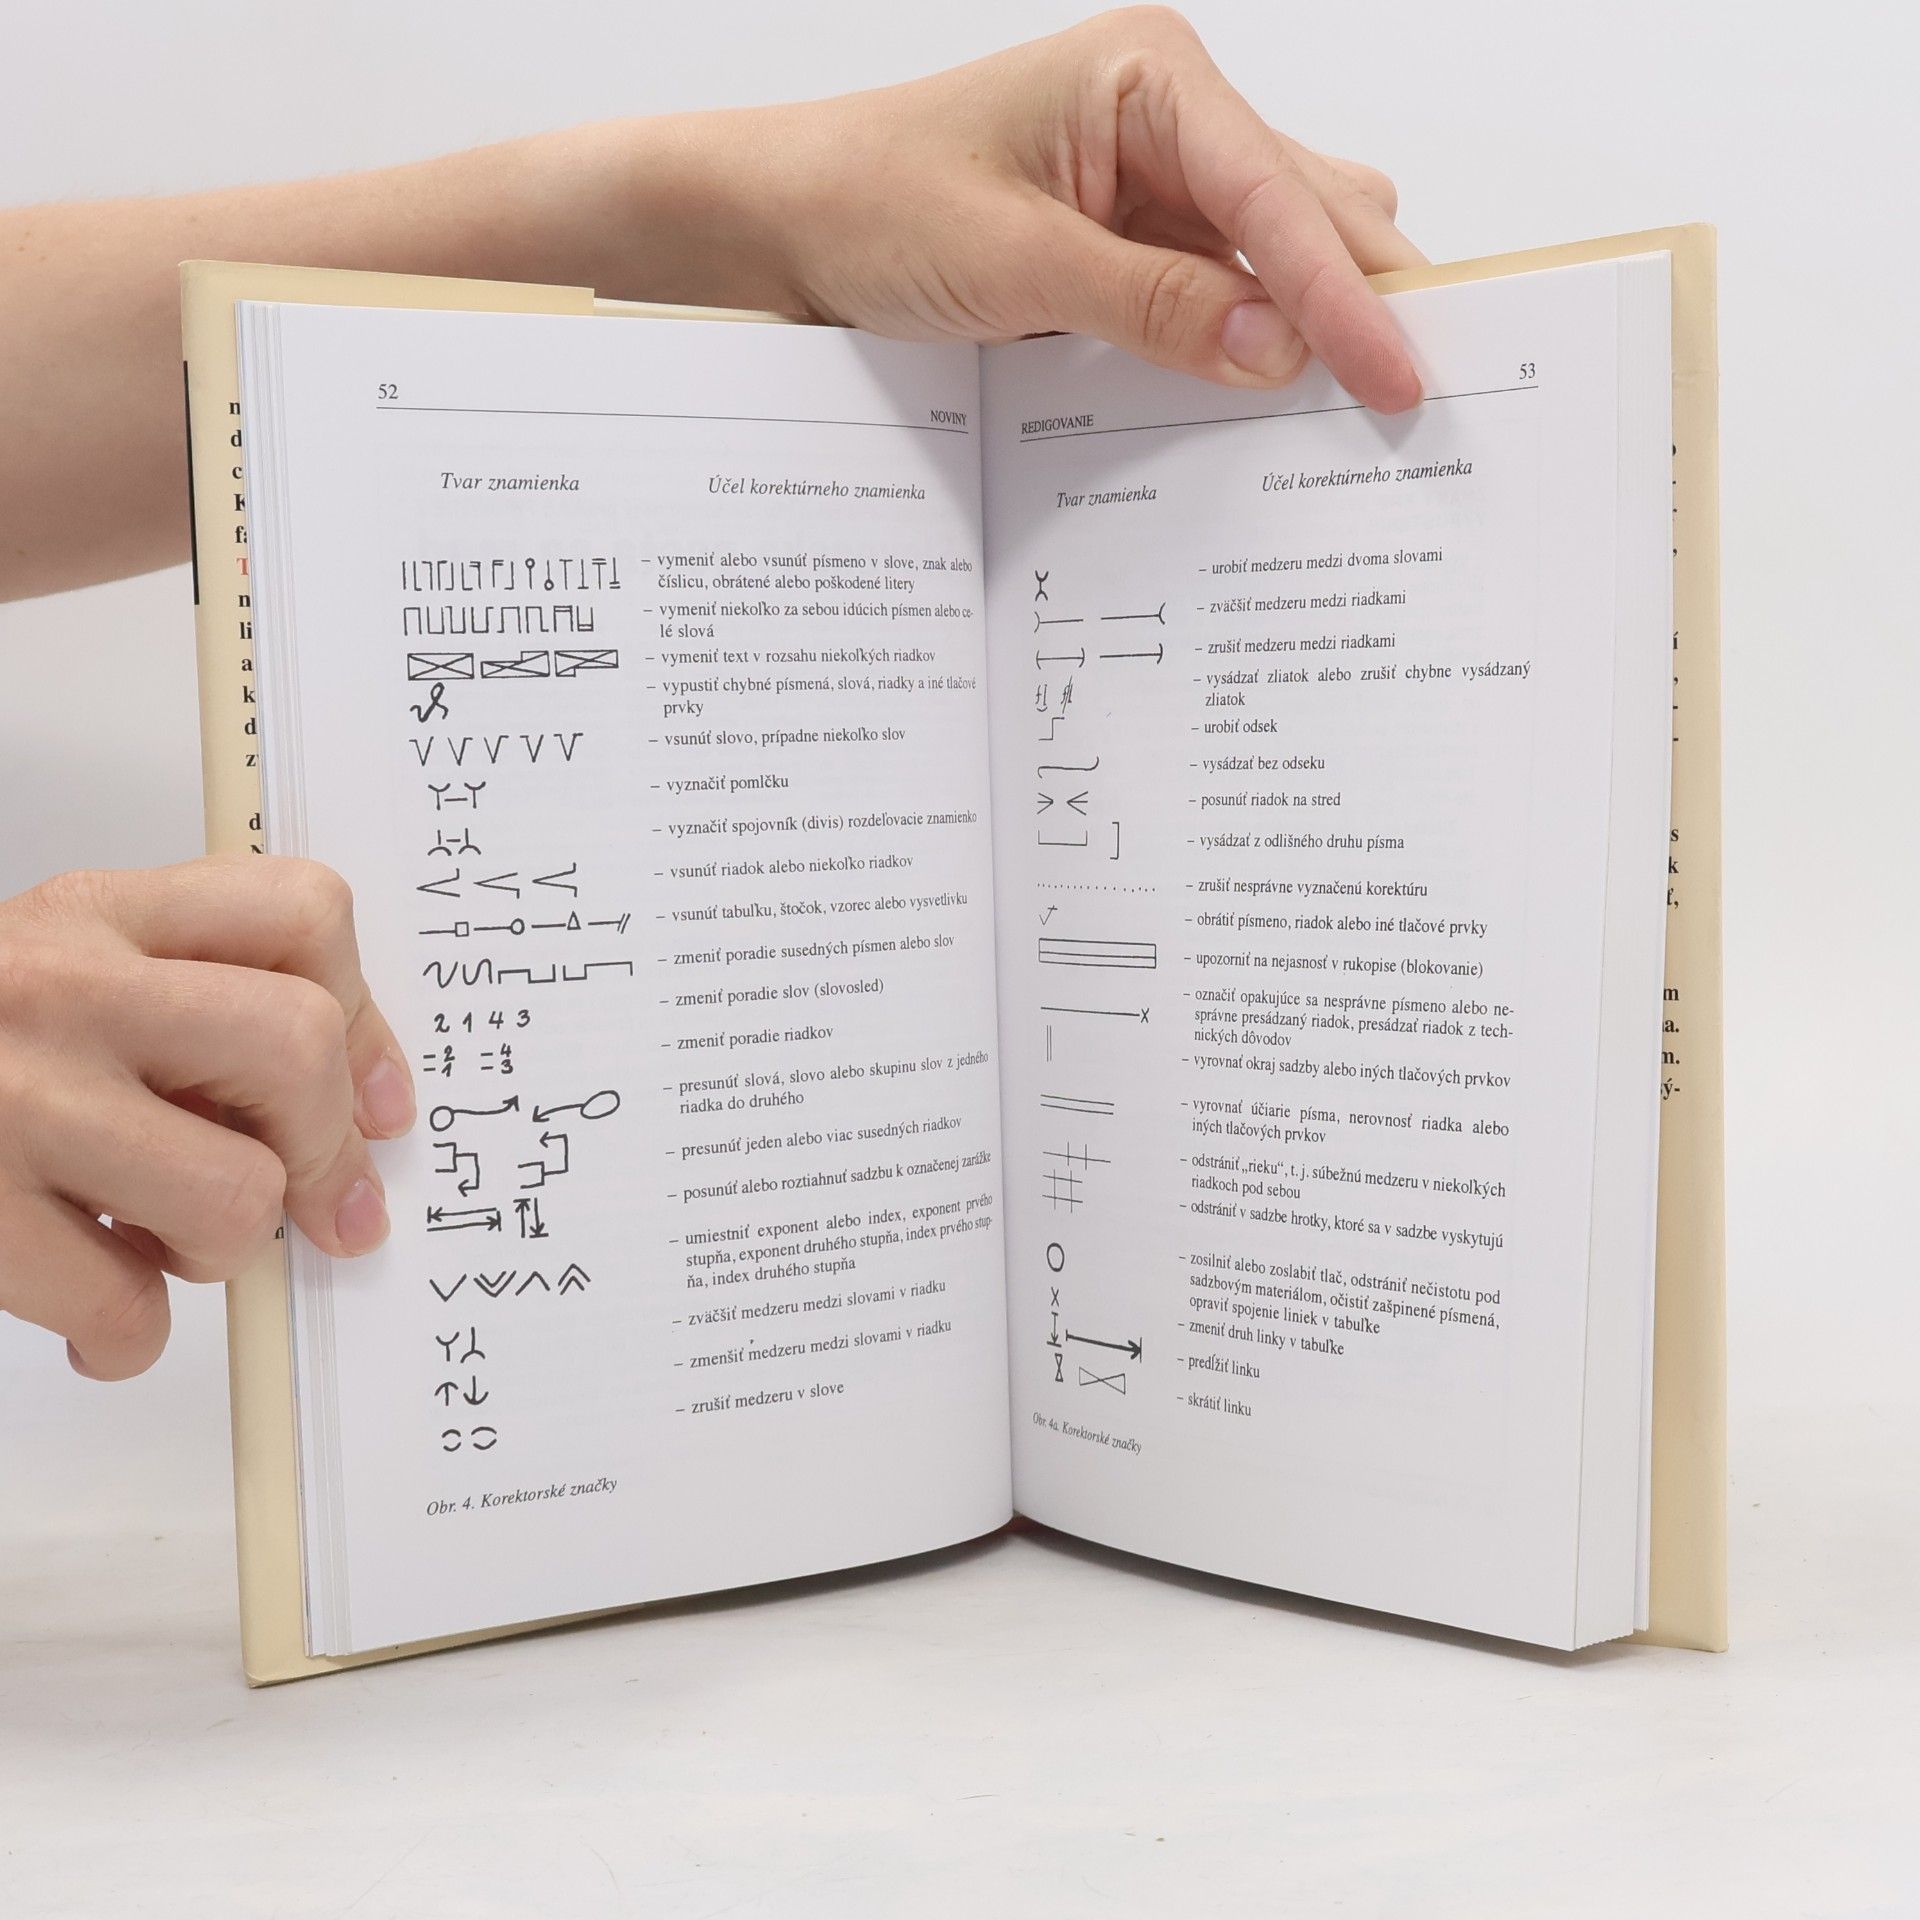 52
NOVINY
Tvar znamienka
Účel korektúrneho znamienka
– vymeniť alebo vsunúť písmeno v slove, znak alebo
číslicu, obrátené alebo poškodené litery
– vymeniť niekoľko za sebou idúcich písmen alebo ce-
lé slová
– vymeniť text v rozsahu niekoľkých riadkov
– vypustiť chybné písmená, slová, riadky a iné tlačové
prvky
– vsunúť slovo, prípadne niekoľko slov
– vyznačiť pomlčku
– vyznačiť spojovník (divis) rozdeľovacie znamienko
– vsunúť riadok alebo niekoľko riadkov
– vsunúť tabuľku, štočok, vzorec alebo vysvetlivku
– zmeniť poradie susedných písmen alebo slov
2 1 4 3
– zmeniť poradie slov (slovosled)
–2 –4
–1 –3
– zmeniť poradie riadkov
– presunúť slová, slovo alebo skupinu slov z jedného
riadka do druhého
– presunúť jeden alebo viac susedných riadkov
– posunúť alebo roztiahnuť sadzbu k označenej zarážke
– umiestniť exponent alebo index, exponent prvého
stupňa, exponent druhého stupňa, index prvého stup-
ňa, index druhého stupňa
– zväčšiť medzeru medzi slovami v riadku
– zmenšiť medzeru medzi slovami v riadku
– zrušiť medzeru v slove
Obr. 4. Korektorské značky
53
REDIGOVANIE
Tvar znamienka
Účel korektúrneho znamienka
– urobiť medzeru medzi dvoma slovami
– zväčšiť medzeru medzi riadkami
– zrušiť medzeru medzi riadkami
– vysádzať zliatok alebo zrušiť chybne vysádzaný
zliatok
– urobiť odsek
– vysádzať bez odseku
– posunúť riadok na stred
– vysádzať z odlišného druhu písma
– zrušiť nesprávne vyznačenú korektúru
– obrátiť písmeno, riadok alebo iné tlačové prvky
– upozorniť na nejasnosť v rukopise (blokovanie)
– označiť opakujúce sa nesprávne písmeno alebo ne-
správne presádzaný riadok, presádzať riadok z tech-
nických dôvodov
– vyrovnať okraj sadzby alebo iných tlačových prvkov
– vyrovnať účiarie písma, nerovnosť riadka alebo
iných tlačových prvkov
– odstrániť „rieku“, t. j. súbežnú medzeru v niekoľkých
riadkoch pod sebou
– odstrániť v sadzbe hrotky, ktoré sa v sadzbe vyskytujú
– zosilniť alebo zoslabiť tlač, odstrániť nečistotu pod
sadzbovým materiálom, očistiť zašpinené písmená,
opraviť spojenie liniek v tabuľke
– zmeniť druh linky v tabuľke
– predĺžiť linku
– skrátiť linku
Obr. 4a. Korektorské značky